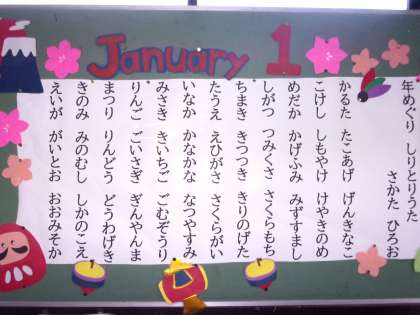 January 1
年めぐり しりとりうた
さかた ひろお
かるた たこあげ げんきなこ
こけし しもやけ けやきのめ
めだか かげふみ みずすまし
しがつ つみくさ さくらもち
ちまき きつつき きりのげた
たうえ えひがさ さくらがい
いなか かなかな なつやすみ
みさき きいちご ごむぞうり
りんご ごいさぎ ぎんやんま
まつり りんどう どうわげき
きのみ みのむし しかのこえ
えいが がいとお おおみそか